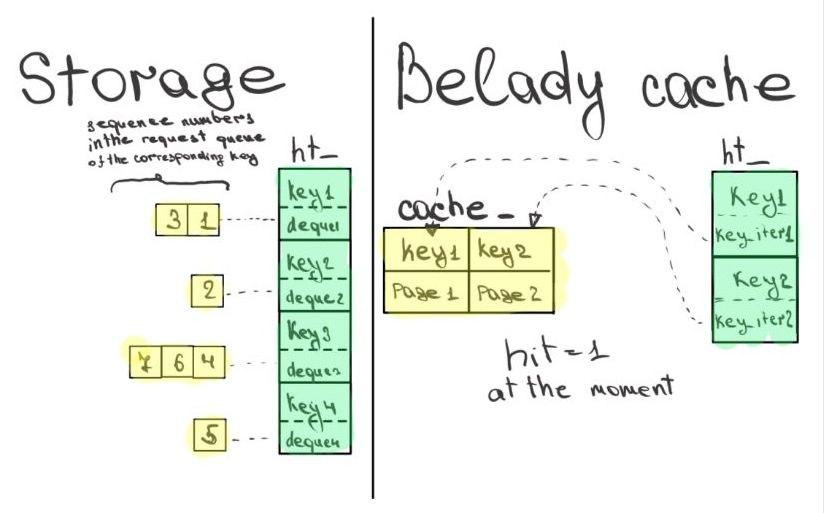 Storage
sequence numbers
in the request queue
of the corresponding key
ht_
key1
deque1
3 1
key2
deque2
2
key3
deque3
7 6 4
key4
deque4
5
Belady cache
ht_
cache_
key1 key2
Page 1 Page 2
Key1
key_iter1
Key2
key_iter2
hit=1
at the moment